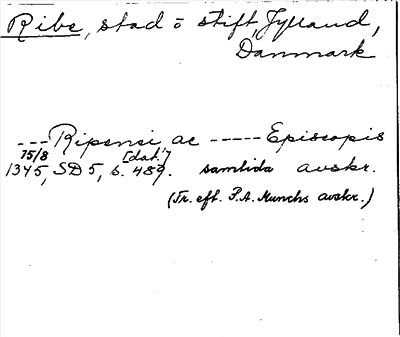 Ribe, stad o stift Jylland,
Danmark
--- Ripensi ac ----- Episcopis
15/8 [dat.!]
1345, SD 5, s. 489. samtida avskr.
(Tr. eft. P.A. Munchs avskr.)